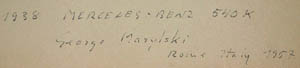 1938 MERCEDES-BENZ 540K
George Marylski
Rome Italy 1957